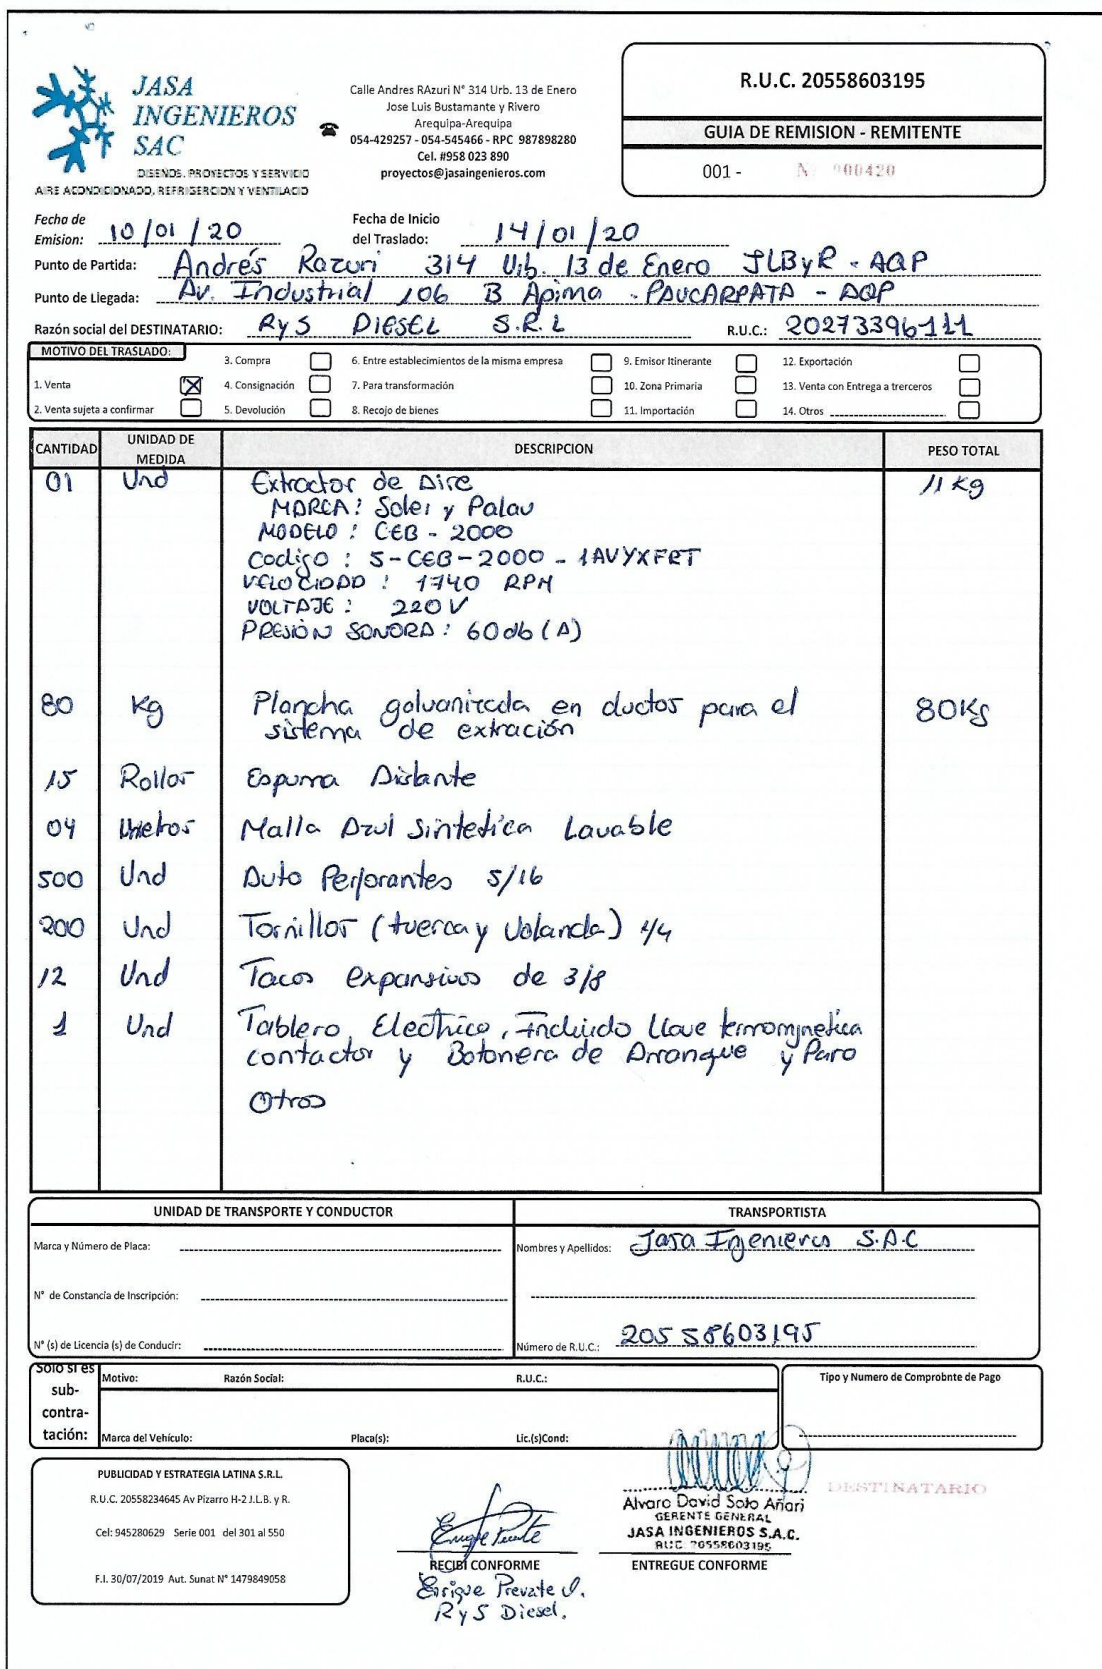 JASA
INGENIEROS
SAC
DISENOS, PROYECTOS Y SERVICIO
AIRE ACONDICIONADO, REFRIGERCION Y VENTILACIO
Calle Andres RAzuri N° 314 Urb. 13 de Enero
Jose Luis Bustamante y Rivero
Arequipa-Arequipa
054-429257 - 054-545466 - RPC 987898280
Cel. #958 023 890
proyectos@jasaingenieros.com
R.U.C. 20558603195
GUIA DE REMISION - REMITENTE
001 - Nº 000420
Fecha de Emision: 10/01/20
Fecha de Inicio del Traslado: 14/01/20
Punto de Partida: Andrés Razuri 314 Urb. 13 de Enero JLByR - AQP
Punto de Llegada: Av. Industrial 106 B Apima - PAUCARPATA - AQP
Razón social del DESTINATARIO: RyS DIESEL S.R.L R.U.C.: 20273396111
MOTIVO DEL TRASLADO:
1. Venta X
2. Venta sujeta a confirmar
3. Compra
4. Consignación
5. Devolución
6. Entre establecimientos de la misma empresa
7. Para transformación
8. Recojo de bienes
9. Emisor Itinerante
10. Zona Primaria
11. Importación
12. Exportación
13. Venta con Entrega a trerceros
14. Otros
CANTIDAD UNIDAD DE MEDIDA DESCRIPCION PESO TOTAL
01 Und Extractor de Aire 11 Kg
MARCA: Soler y Palau
MODELO: CEB - 2000
Codigo: 5-CEB-2000-1AVYXFRT
VELOCIDAD: 1740 RPM
VOLTAJE: 220V
PRESIÓN SONORA: 60db(A)
80 Kg Plancha galvanizada en ductos para el 80Kg
sistema de extración
15 Rollos Espuma Aislante
04 Metros Malla Azul Sintetica Lavable
500 Und Auto Perforantes 5/16
200 Und Tornillos (tuerca y Volanda) 1/4
12 Und Tacos expansivos de 3/8
1 Und Tablero Electrico, Incluido llave
contactor y Botonera de Arranque y Paro
Otros
UNIDAD DE TRANSPORTE Y CONDUCTOR
Marca y Número de Placa:
N° de Constancia de Inscripción:
N° (s) de Licencia (s) de Conducir:
TRANSPORTISTA
Nombres y Apellidos: Jasa Ingenieros S.A.C
Número de R.U.C.: 20558603195
Solo si es sub-contra-tación:
Motivo: Razón Social: R.U.C.:
Marca del Vehículo: Placa(s): Lic.(s)Cond:
Tipo y Numero de Comprobnte de Pago
PUBLICIDAD Y ESTRATEGIA LATINA S.R.L.
R.U.C. 20558234645 Av Pizarro H-2 J.L.B. y R.
Cel: 945280629 Serie 001 del 301 al 550
F.I. 30/07/2019 Aut. Sunat N° 1479849058
RECIBÍ CONFORME
Enrique
RyS Diesel.
Alvaro David Soto Añari
GERENTE GENERAL
JASA INGENIEROS S.A.C.
RUC 20558603195
ENTREGUE CONFORME
DESTINATARIO